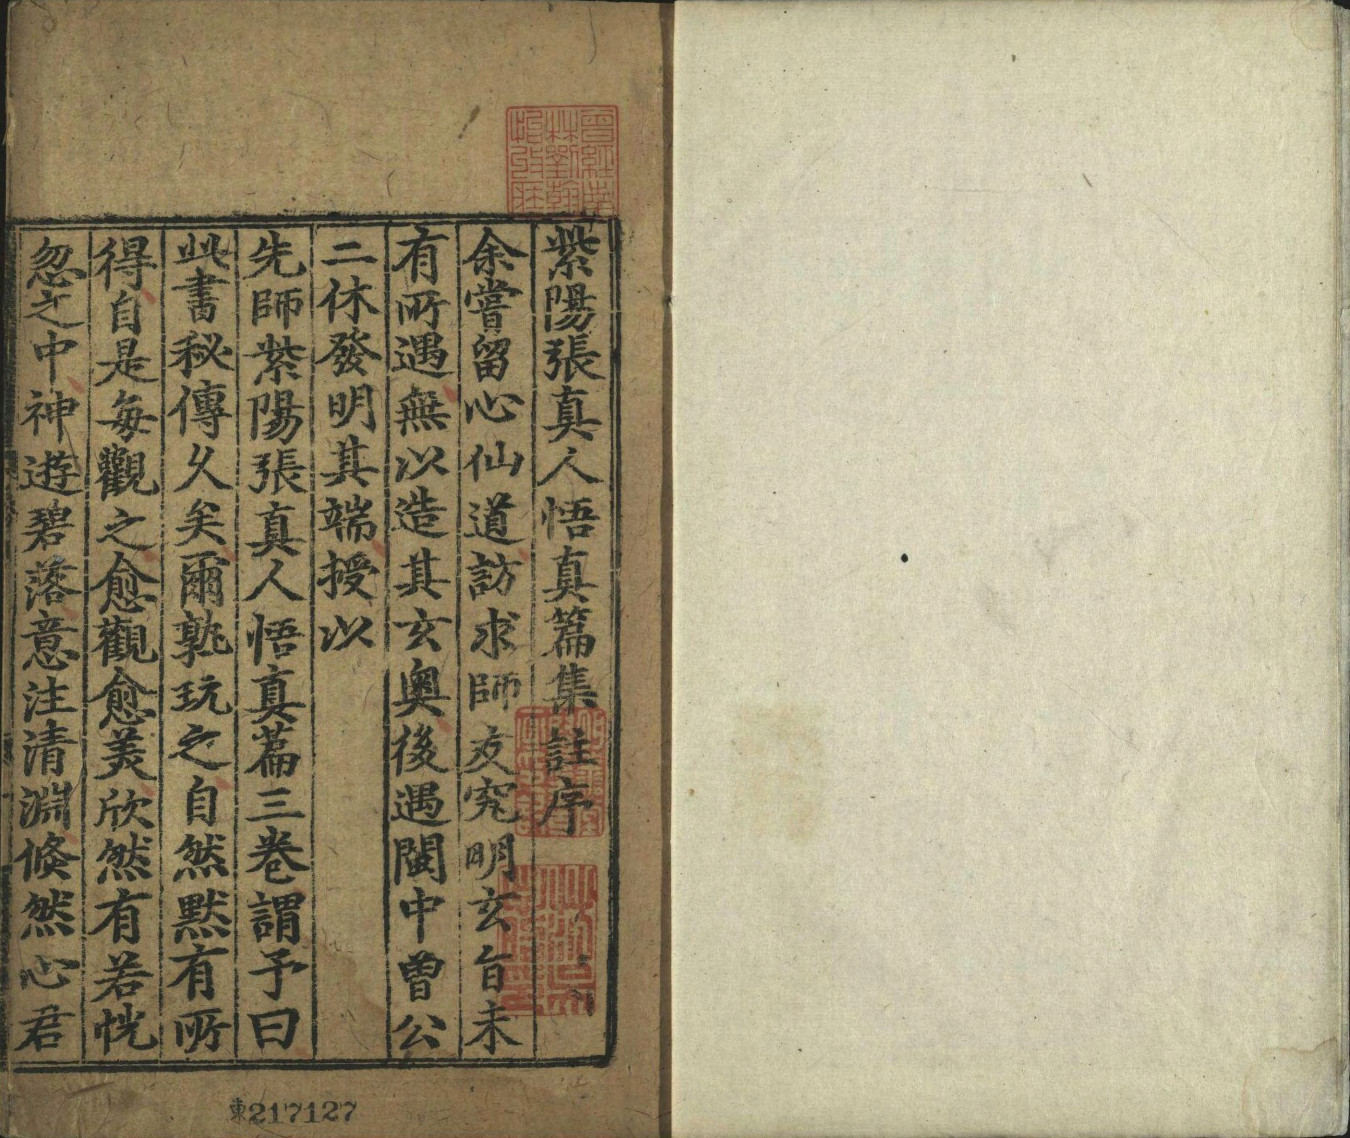 紫陽張真人悟真篇集註序
余嘗留心仙道訪求師友究明玄旨未
有所遇無以造其玄奧後遇閩中曾公
二休發明其端授以
先師紫陽張真人悟真篇三卷謂予曰
此書秘傳久矣爾孰玩之自然默有所
得自是每觀之愈觀愈美欣然有若恍
忽之中神遊碧落意注清淵倏然心君
東217127